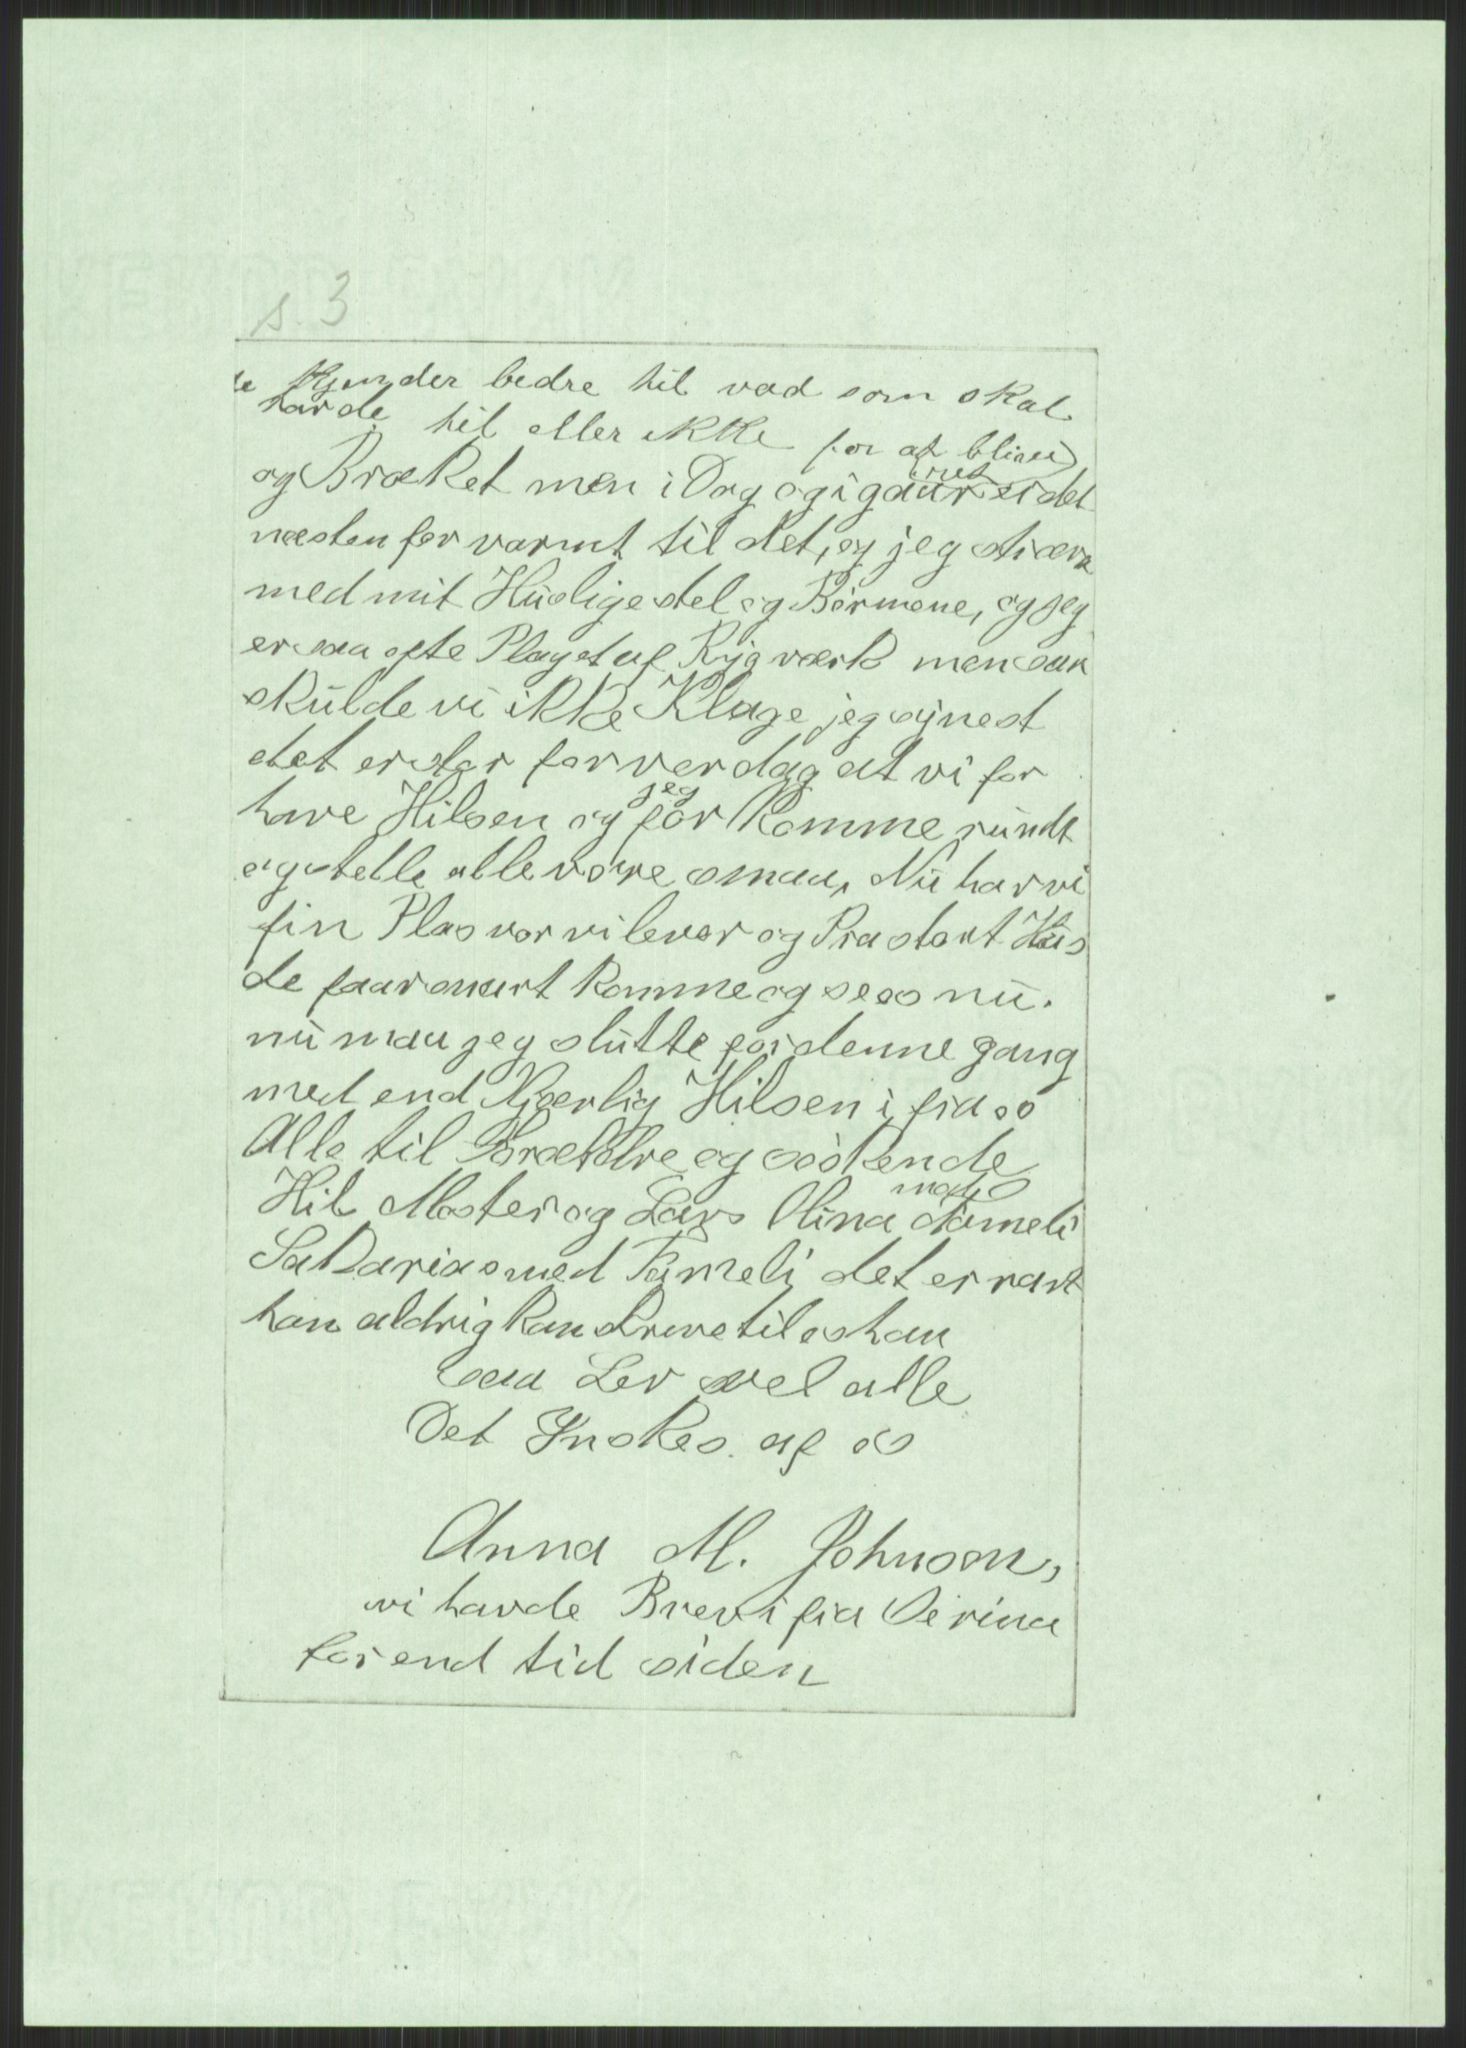 s. 3
Kjender bedre til vad som skal
harde til eller ikke for at blive
og Bræket men i Dag og igaar er det
næsten for varmt til det, og jeg
med mit Huslige stel og Börnene, og jeg
er saa ofte Plaget af Rygværk men saa
skulde vi ikke Klage jeg synest
det er stor forverdag at vi for
have Hilsen og jeg for Komme rundt
og stelle alle vore smaa, Nu har vi
fin Plas vor vi lever og Bra stort Hus
de faar snart komme og se os nu.
nu maa jeg slutte for denne gang
med end Kjærlig Hilsen i fra os
Alle til Forældre og söskende
Hils Moster og Lars Olina med Fameli
Sakarias med Fameli det er rart
han aldrig kan skrive til os han
saa Lev vel alle
Det Ynskes af os
Anna M. Johnson,
vi havde Brev ifra Serina
for end tid siden